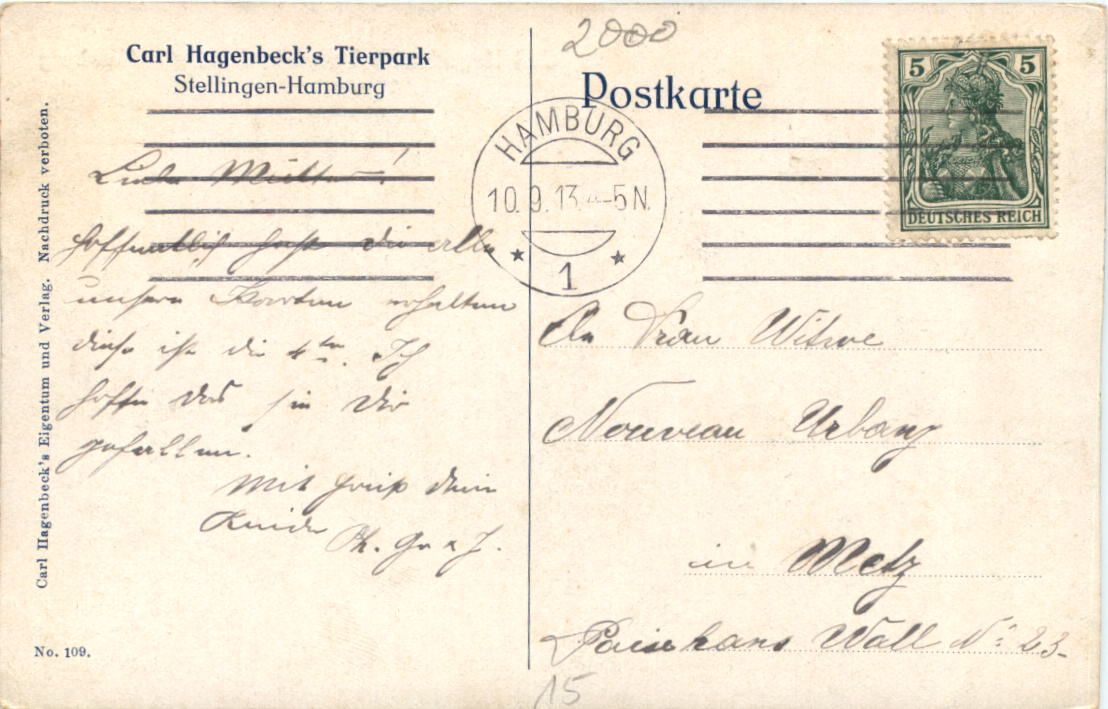 2000
Carl Hagenbeck's Tierpark
Stellingen-Hamburg
Postkarte
5 5
DEUTSCHES REICH
HAMBURG
10.9.13.4-5N.
* 1 *
Liebe Mutter!
Hoffentlich hast Du alle
unsere Karten erhalten
diese ist die 4te. Ich
hoffe das sie Dir
gefallen.
Mit Gruß Deine
Kinder
An Frau Witwe
Nouveau Urbany
in Metz
Wall No: 23.
Carl Hagenbeck's Eigentum und Verlag. Nachdruck verboten.
No. 109.
15